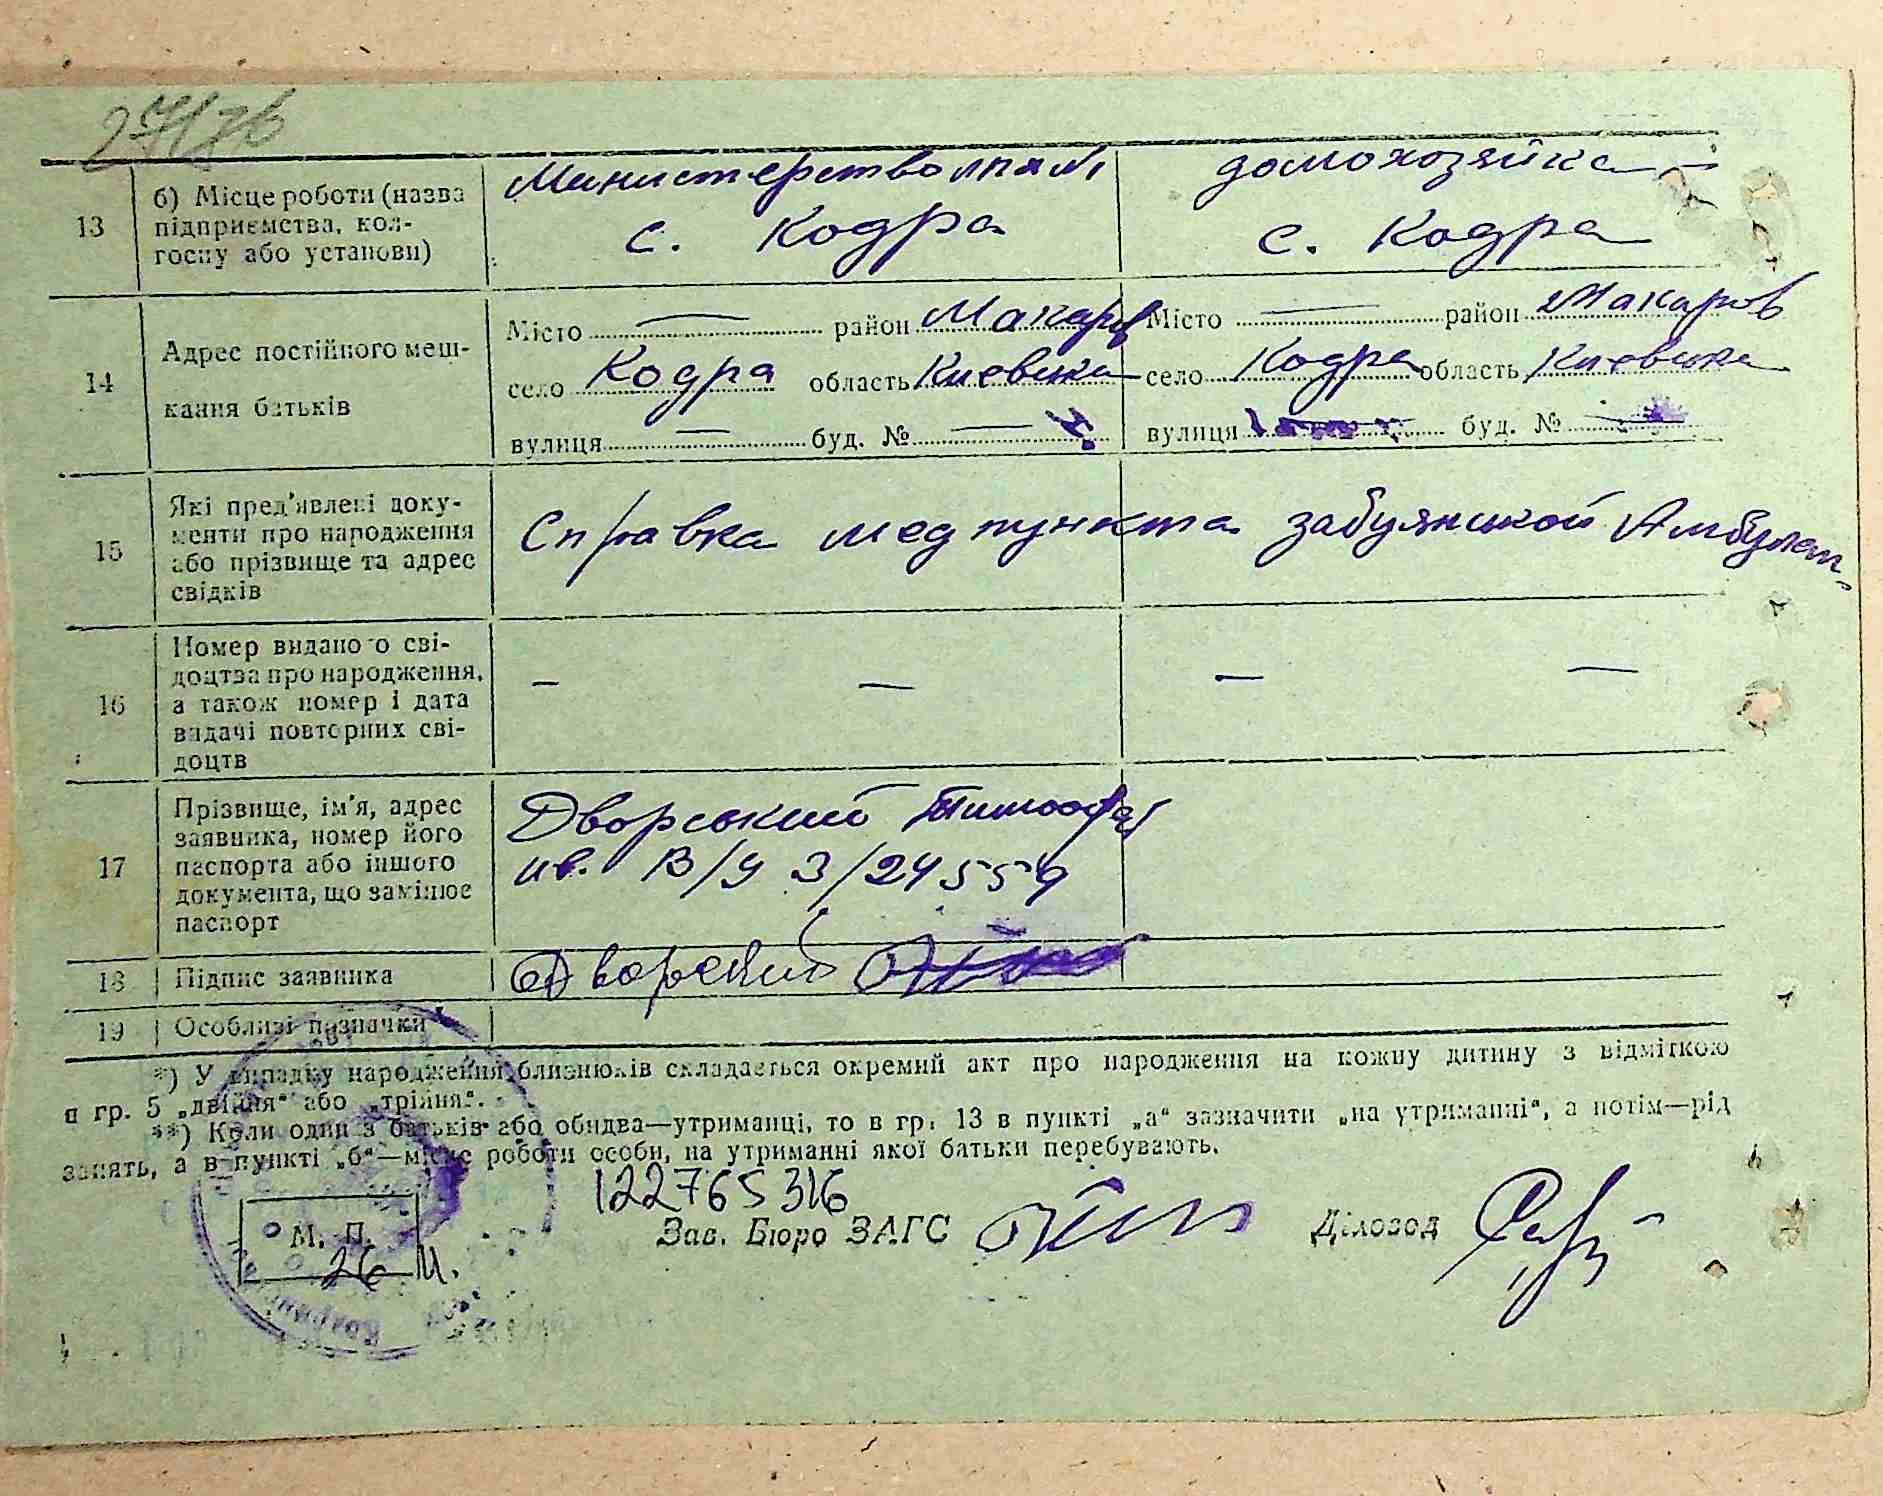 13
б) Місце роботи (назва
підприємства, кол-
госпу або установи)
Министерство
с. Кодра
домохозяйка
с. Кодра
14
Адрес постійного меш-
кання батьків
Місто — район Макаров
село Кодра область Киевска
вулиця — буд. № —
Місто — район Макаров
село Кодра область Киевска
вулиця буд. №
15
Які пред'явлені доку-
менти про народження
або прізвище та адрес
свідків
Справка медпункта забуянской Амбулат-
16
Номер виданого сві-
доцтва про народження,
а також номер і дата
видачі повторних сві-
доцтв
— — — —
17
Прізвище, ім'я, адрес
заявника, номер його
паспорта або іншого
документа, що замінює
паспорт
Дворський Тимофей
ив. В/У З/24559
18
Підпис заявника
Дворский
19
Особливі позначки
*) У випадку народження близнюків складається окремий акт про народження на кожну дитину з відміткою
в гр. 5 „двійня" або „трійня".
**) Коли один з батьків або обидва—утриманці, то в гр. 13 в пункті „а" зазначити „на утриманні", а потім—рід
занять, а в пункті „б"—місце роботи особи, на утриманні якої батьки перебувають.
122765316
М. П.
Зав. Бюро ЗАГС
Діловод